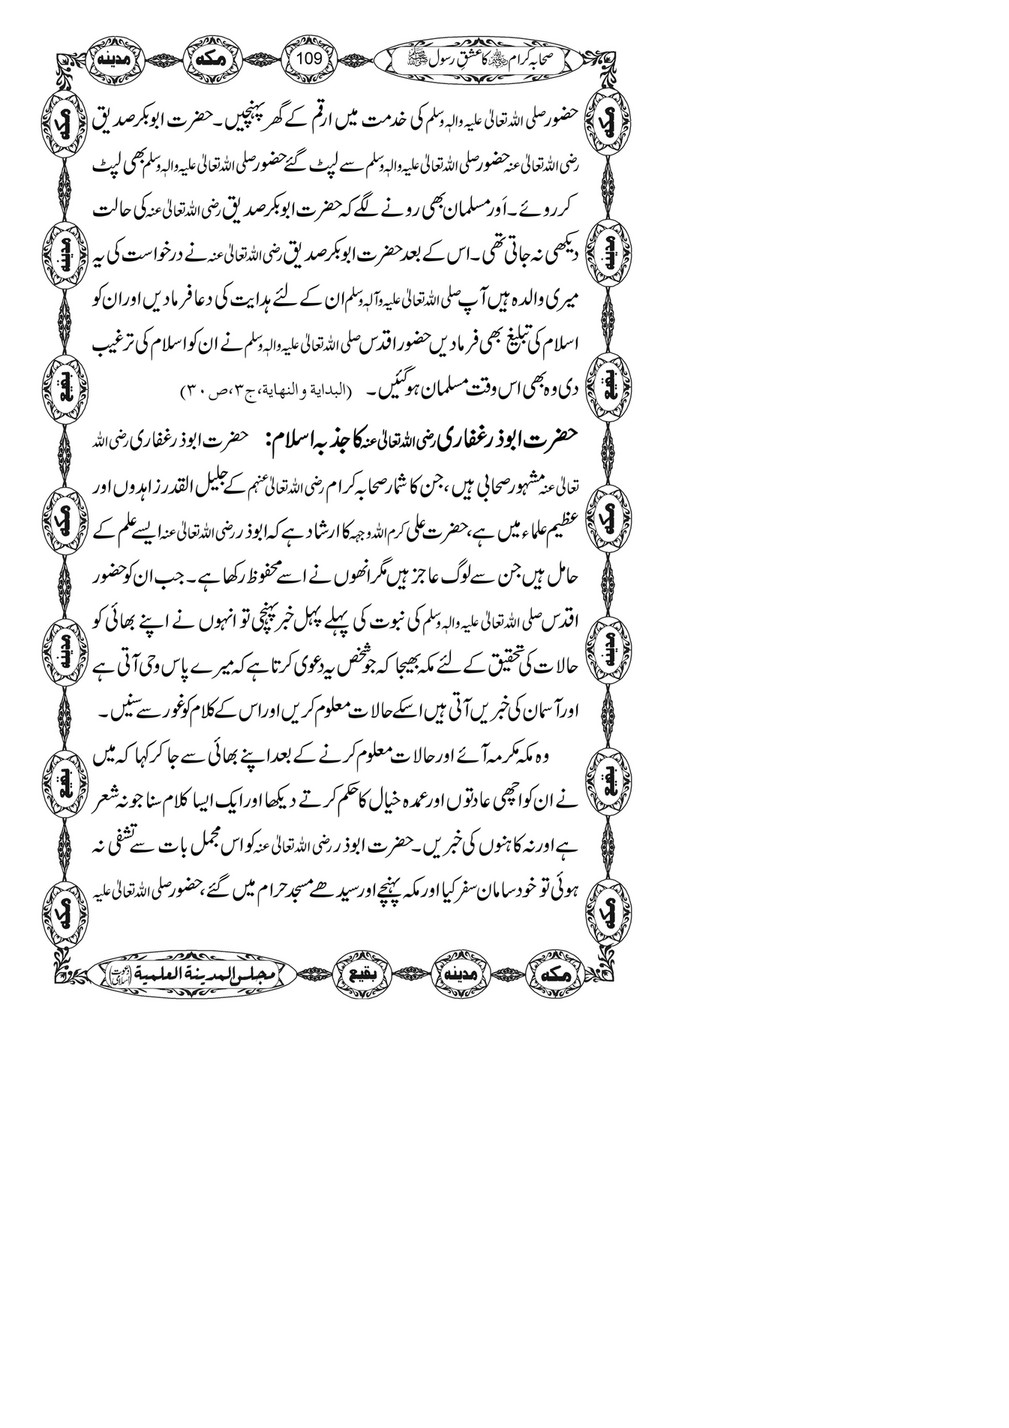 صحابہ کرام ﷺ کا عشق رسول ﷺ 109 مکه مدینه
حضور صلی اللہ تعالیٰ علیہ والہٖ وسلم کی خدمت میں ارقم کے گھر پہنچیں۔ حضرت ابوبکر صدیق
رضی اللہ تعالیٰ عنہ حضور صلی اللہ تعالیٰ علیہ والہٖ وسلم سے لپٹ گئے حضور صلی اللہ تعالیٰ علیہ والہٖ وسلم بھی لپٹ
کر روئے۔ اَور مسلمان بھی رونے لگے کہ حضرت ابوبکر صدیق رضی اللہ تعالیٰ عنہ کی حالت
دیکھی نہ جاتی تھی۔ اس کے بعد حضرت ابوبکر صدیق رضی اللہ تعالیٰ عنہ نے درخواست کی یہ
میری والدہ ہیں آپ صلی اللہ تعالیٰ علیہ وآلہٖ وسلم ان کے لئے ہدایت کی دعا فرمادیں اور ان کو
اسلام کی تبلیغ بھی فرمادیں حضور اقدس صلی اللہ تعالیٰ علیہ والہٖ وسلم نے ان کو اسلام کی ترغیب
دی وہ بھی اس وقت مسلمان ہوگئیں۔ (البداية والنهاية، ج۳، ص۳۰)
حضرت ابوذر غفاری رضی اللہ تعالیٰ عنہ کا جذبہ اسلام: حضرت ابوذر غفاری رضی اللہ
تعالیٰ عنہ مشہور صحابی ہیں، جن کا شمار صحابہ کرام رضی اللہ تعالیٰ عنہم کے جلیل القدر زاہدوں اور
عظیم علماء میں ہے، حضرت علی کرم اللہ وجہہ کا ارشاد ہے کہ ابوذر رضی اللہ تعالیٰ عنہ ایسے علم کے
حامل ہیں جن سے لوگ عاجز ہیں مگر انھوں نے اسے محفوظ رکھا ہے۔ جب ان کو حضور
اقدس صلی اللہ تعالیٰ علیہ والہٖ وسلم کی نبوت کی پہلے پہل خبر پہنچی تو انہوں نے اپنے بھائی کو
حالات کی تحقیق کے لئے مکہ بھیجا کہ جو شخص یہ دعوی کرتا ہے کہ میرے پاس وحی آتی ہے
اور آسمان کی خبریں آتی ہیں اسکے حالات معلوم کریں اور اس کے کلام کو غور سے سنیں۔
وہ مکہ مکرمہ آئے اور حالات معلوم کرنے کے بعد اپنے بھائی سے جا کر کہا کہ میں
نے ان کو اچھی عادتوں اور عمدہ خیال کا حکم کرتے دیکھا اور ایک ایسا کلام سنا جو نہ شعر
ہے اور نہ کاہنوں کی خبریں۔ حضرت ابوذر رضی اللہ تعالیٰ عنہ کو اس مجمل بات سے تشفی نہ
ہوئی تو خود سامان سفر کیا اور مکہ پہنچے اور سیدھے مسجد حرام میں گئے، حضور صلی اللہ تعالیٰ علیہ
مکه مدینه بقیع مکه مدینه بقیع مکه
مکه مدینه بقیع مکه مدینه بقیع مکه
مکه مدینه بقیع مجلس المدينة العلمية (دعوت اسلامی)